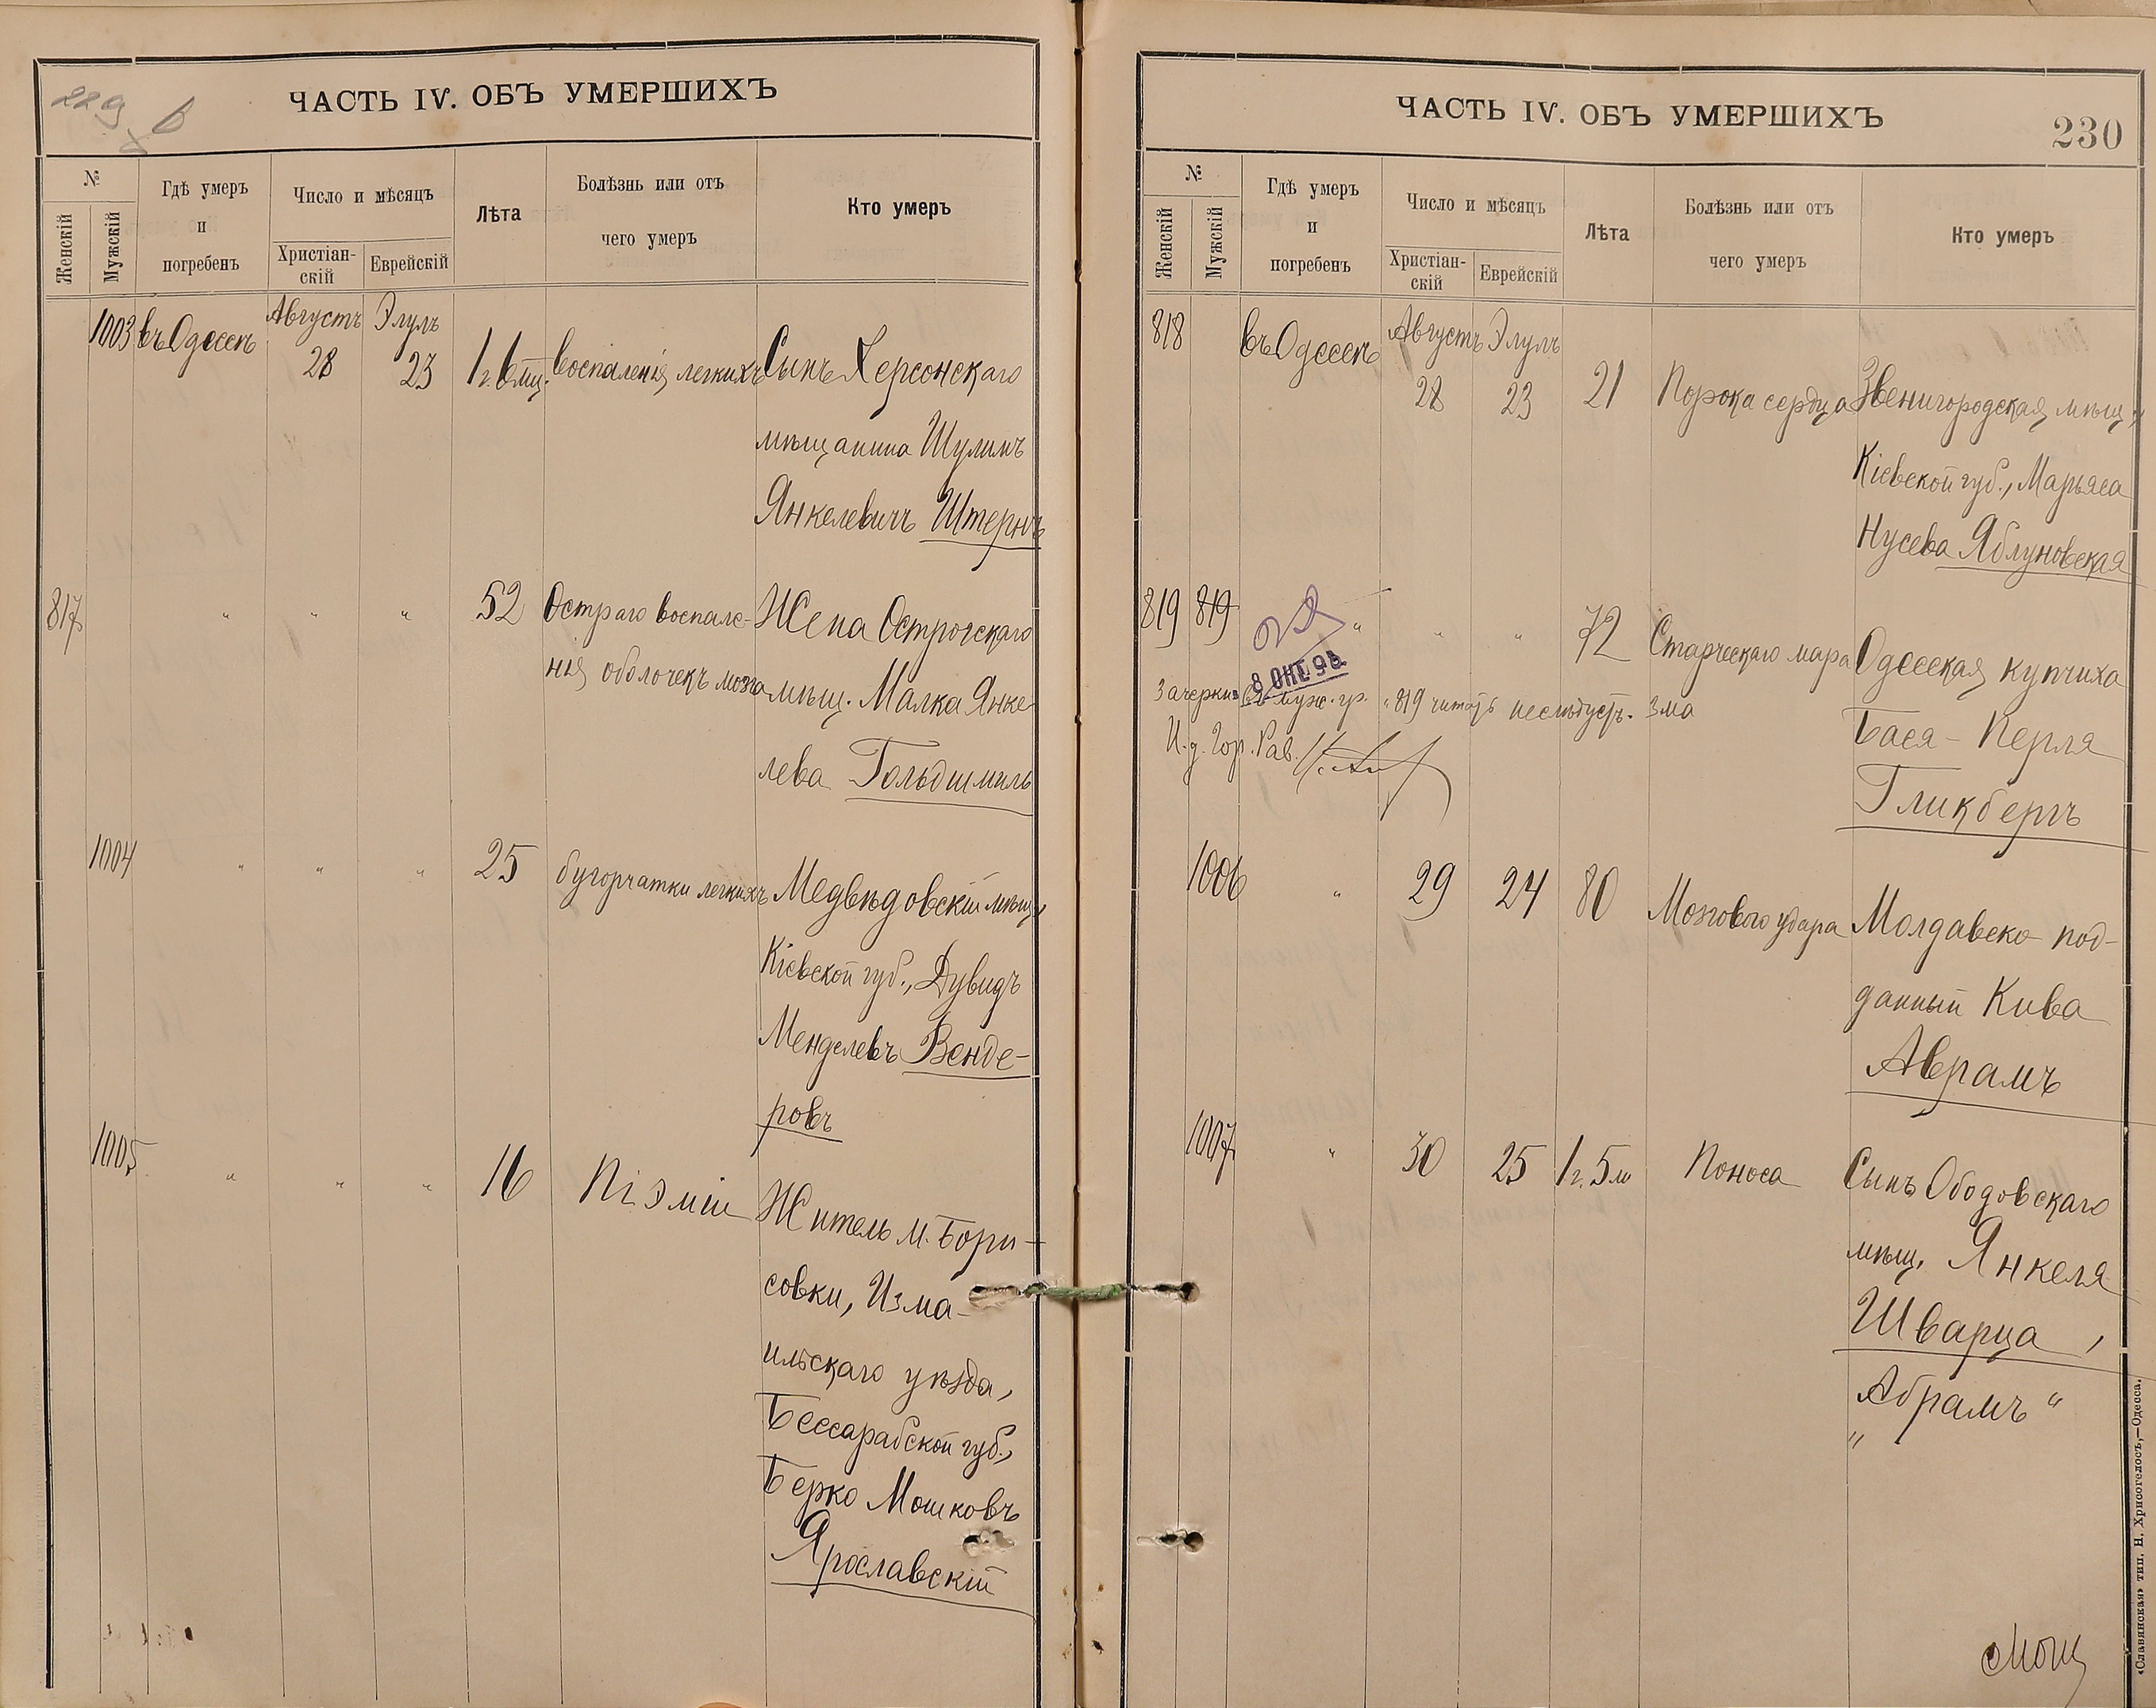 229 б
ЧАСТЬ IV. ОБЪ УМЕРШИХЪ
№
Женскій
Мужскій
Гдѣ умеръ
и
погребенъ
Число и мѣсяцъ
Христіан-
скій
Еврейскій
Лѣта
Болѣзнь или отъ
чего умеръ
Кто умеръ
1003 въ Одессѣ Августъ 28 Элулъ 23 1 г. 6 мц. воспаленія легкихъ Сынъ Херсонскаго
мѣщанина Шулимъ
Янкелевичъ Штернъ
817 " " " 52 Остраго воспале- Жена Острогскаго
нія оболочекъ мозга мѣщ. Малка Янке
лева Гольдшмиль
1004 " " " 25 бугорчатки легкихъ Медвѣдовскій мѣщ.
Кіевской губ., Дувидъ
Менделевъ Венде-
ровъ
1005 " " " 16 Піэміи Житель м. Бори-
совки, Изма-
ильскаго уѣзда,
Бессарабской губ.,
Берко Мошковъ
Ярославскій
ЧАСТЬ IV. ОБЪ УМЕРШИХЪ
230
№
Женскій
Мужскій
Гдѣ умеръ
и
погребенъ
Число и мѣсяцъ
Христіан-
скій
Еврейскій
Лѣта
Болѣзнь или отъ
чего умеръ
Кто умеръ
818 въ Одессѣ Августъ 28 Элулъ 23 21 Порока сердца Звенигородская мѣщ.
Кіевской губ., Марьяса
Нусева Яблуновская
819 819 " " " 72 Старческаго мара Одесская купчиха
8 ОКТ 98
Зачеркн. въ муж. гр. "819 читать неслѣдуетъ. зма
И. д. Гор. Рав.
Бася-Перля
Гликбергъ
1006 " 29 24 80 Мозгового удара Молдавско под-
данный Кива
Аврамъ
1007 " 30 25 1 г. 5 м Поноса Сынъ Ободовскаго
мѣщ. Янкеля
Шварца,
„Абрамъ“
«Славянская» тип. Н. Хрисогелосъ,—Одесса.